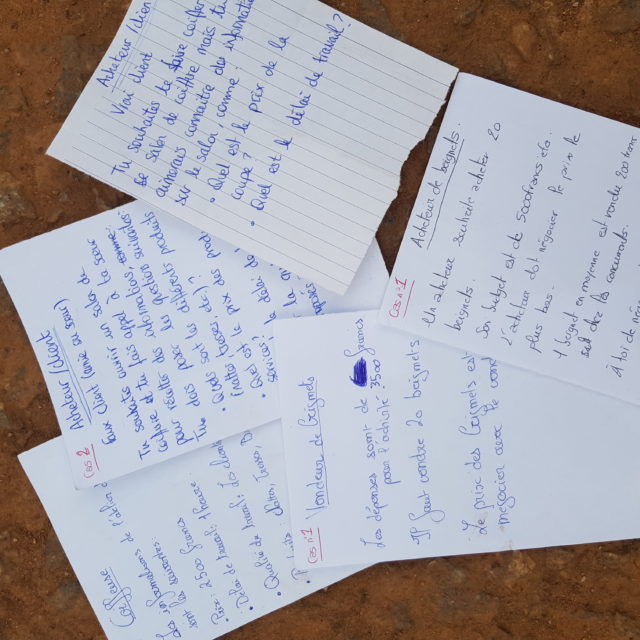 Coiffeuse
Les informations de l'atelier d
sont les suivantes:
• Prix: 2500 francs
• Délai de travail: 1 heure
• Qualité du travail: Les clients
Produits: Nattes, Tresses,
Cas 2
Acheteur/client
Faux client (amie ou sœur)
Tu souhaites ouvrir un salon de
coiffure et tu fais appel à ta sœur
pour récolter des informations,
Tu dois poser les questions suivantes:
• Quels sont les différents produits
(nattes, tresses, etc)?
• Quel est le prix des prod
services?
le délai de
la qu
Acheteur/clien
Vrai client
Tu souhaites te faire coiffer
le salon de coiffure mais tu
aimerais connaitre des informatio
sur le salon, comme:
• Quel est le prix de la
coupe?
• Quel est le délai de travail?
Cas n°1
Vendeur de beignets
Les dépenses sont de francs
pour l'activité 3500
Il faut vendre 20 beignets
Le prix des beignets est
négocier avec le vend
Cas n°1
Acheteur de beignets.
Un acheteur souhaite acheter 20
beignets.
Son budget est de 5000 francs cfa.
L'acheteur doit négocier le prix le
plus bas.
1 beignet en moyenne est vendu 200 francs
chez les concurrents.
À toi de négo